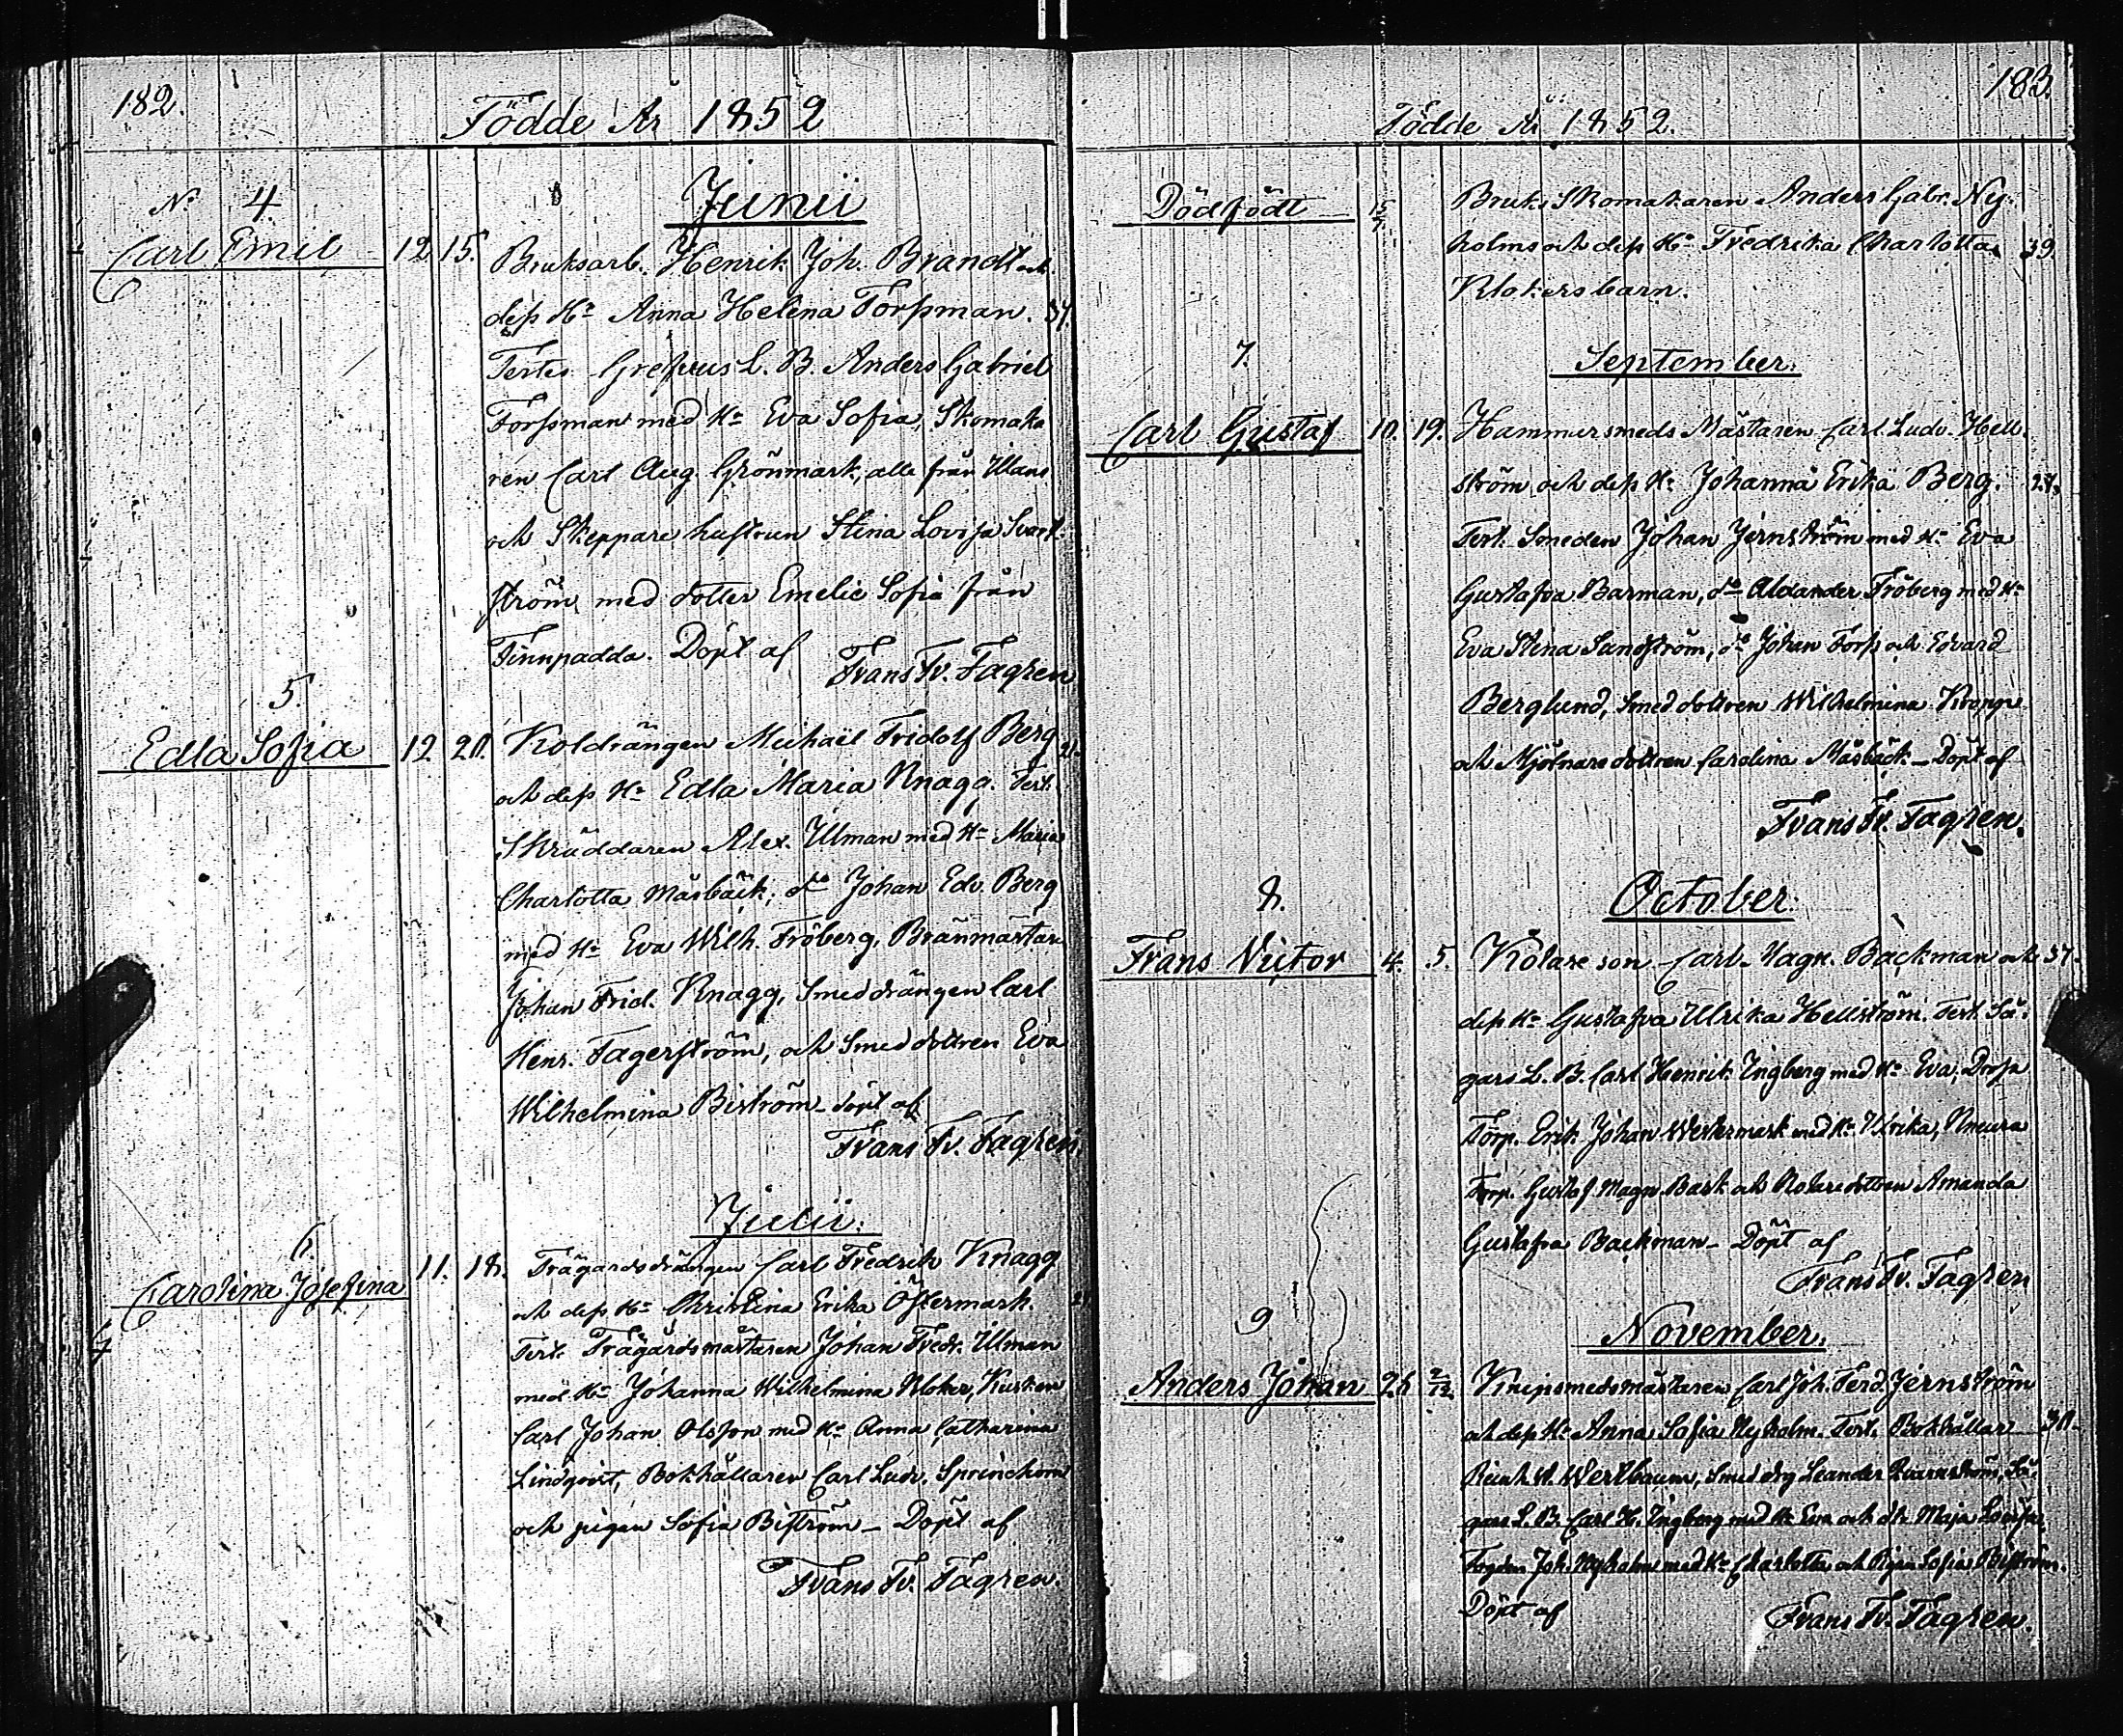 182.
Födde År 1852
No 4.
Junii
Carl Emil 12 15. Bruksarb. Henrik Joh. Brandt och
dess Ha Anna Helena Forsman. 37.
Testes L. B. Anders Gabriel
Forssman med Ha Eva Sofia, Skomaka
ren Carl Aug. Grönmark, alla från
och Skeppare hustrun Stina Lovisa Svart-
ström med dotter Emelie Sofia från
Finnpadda. Döpt af Frans Fr. Fagren
5.
Edla Sofia 12 20. Koldrängen Michaël Fridolf Berg
och dess Ha Edla Maria Knagg. Test.
Skräddaren Alex. Ulman med Ha Maria
Charlotta Måsbäck, do Johan Edv. Berg
med Ha Eva Wilh. Fröberg, Bränmästare
Johan Frid. Knagg, Smeddrängen Carl
Henr. Fagerström, och Smeddottren Eva
Wilhelmina Biström - döpt af
Frans Fr. Fagren.
Julii.
6.
Carolina Josefina 11. 18. Trägårdsdrängen Carl Fredrik Knagg
och dess Ha Christina Erika Östermark.
Test. Trägårdsmästaren Johan Fredr. Ulman
med Ha Johanna Wilhelmina Kloker, Kusken
Carl Johan Olsson med Ha Anna Catharina
Lindqvist, Bokhållaren Carl Ludv.
och pigan Sofia Biström - Döpt af
Frans Fr. Fagren.
183.
Födde År 1852.
Dödfödt 15/7 Bruks Skomakaren Anders Gabr. Ny-
holms och dess Ha Fredrika Charlotta 39.
Klokers barn.
7.
September.
Carl Gustaf 10. 19. Hammarsmeds Mästaren Carl Ludv. Hell-
ström och dess Ha Johanna Erika Berg.
Test. Smeden Johan Jernström med Ha Eva
Gustafva Barman, do Alexander Fröberg med Ha
Eva Stina Sandström, do Johan Forss och Edvard
Berglund, Smeddottren Wilhelmina Kroppe
och Mjölnare dottren Carolina Måsbäck - Döpt af
Frans Fr. Fagren.
8.
October.
Frans Victor 4. 5. Kolare son Carl Magn. Backman och 37.
dess Ha Gustafva Ulrika Hellström. Test. Så-
gars L. B. Carl Henrik Engberg med Ha Eva,
Torp. Erik Johan Westermark med Ha Ulrika,
Torp. Gustaf Magn. Bask och Kolaredottren Amanda
Gustafva Backman - Döpt af
Frans Fr. Fagren
9
November.
Anders Johan 26 2/12 Knipsmedsmästaren Carl Joh. Ferd. Jernström
och dess Ha Anna Sofia Nyholm. Test. Bokhållar 30.
Reinh. W. Smed drg Leander Så-
gars L. B. Carl H. Engberg med Ha Eva och dr. Maja Lovisa,
Fogden Joh. Nyholm med Ha Charlotta och Pigan Sofia Biström.
Döpt af Frans Fr. Fagren.